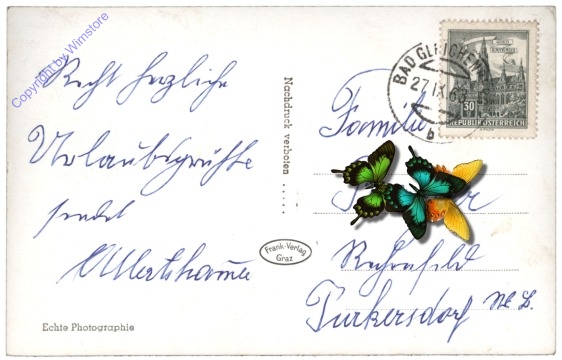 Copyright by Wimstore
Recht herzliche
Urlaubsgrüße
sendet
Echte Photographie
Nachdruck verboten .....
Frank-Verlag
Graz
BAD GLEICHEN
27.IX.6
b
30
REPUBLIK ÖSTERREICH
Familie
Purkersdorf